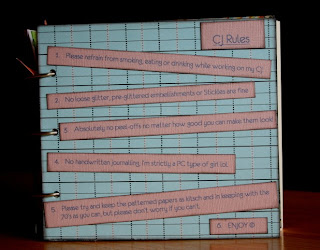 CJ Rules
1. Please refrain from smoking, eating or drinking while working on my CJ
2. No loose glitter, pre-glittered embellishments or Stickles are fine
3. Absolutely no peel-offs no matter how good you can make them look!
4. No handwritten journalling, I'm strictly a PC type of girl lol.
5. Please try and keep the patterned papers as kitsch and in keeping with the
70's as you can, but please don't worry if you can't.
6. ENJOY ☺